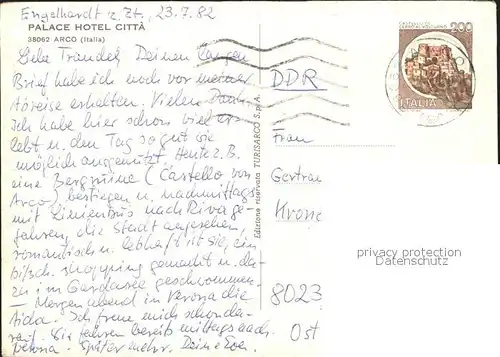 Engelhardt z. Zt., 23.7.82
PALACE HOTEL CITTÀ
38062 ARCO (Italia)
Liebe Traudel, Deinen langen
Brief habe ich noch vor meiner
Abreise erhalten. Vielen Dank.
Ich habe hier schon viel er-
lebt u. den Tag so gut wie
möglich ausgenützt. Heute z.B.
eine Bergruine (Castello von
Arco) bestiegen u. nachmittags
mit Linienbus nach Riva ge-
fahren, die Stadt angesehen,
romantisch u. lebhaft ist sie, ein
bißch. shopping gemacht u. da-
zu im Gardasee geschwommen.
Morgen abend in Verona die
Aida. Ich freue mich schon da-
rauf. Wir fahren bereits mittags nach
Verona. Später mehr. Deine
Edizione riservata TURISARCO S.p.A.
200
ITALIA
DDR
Frau
Gertrau
Krone
8023
Ost
privacy protection
Datenschutz